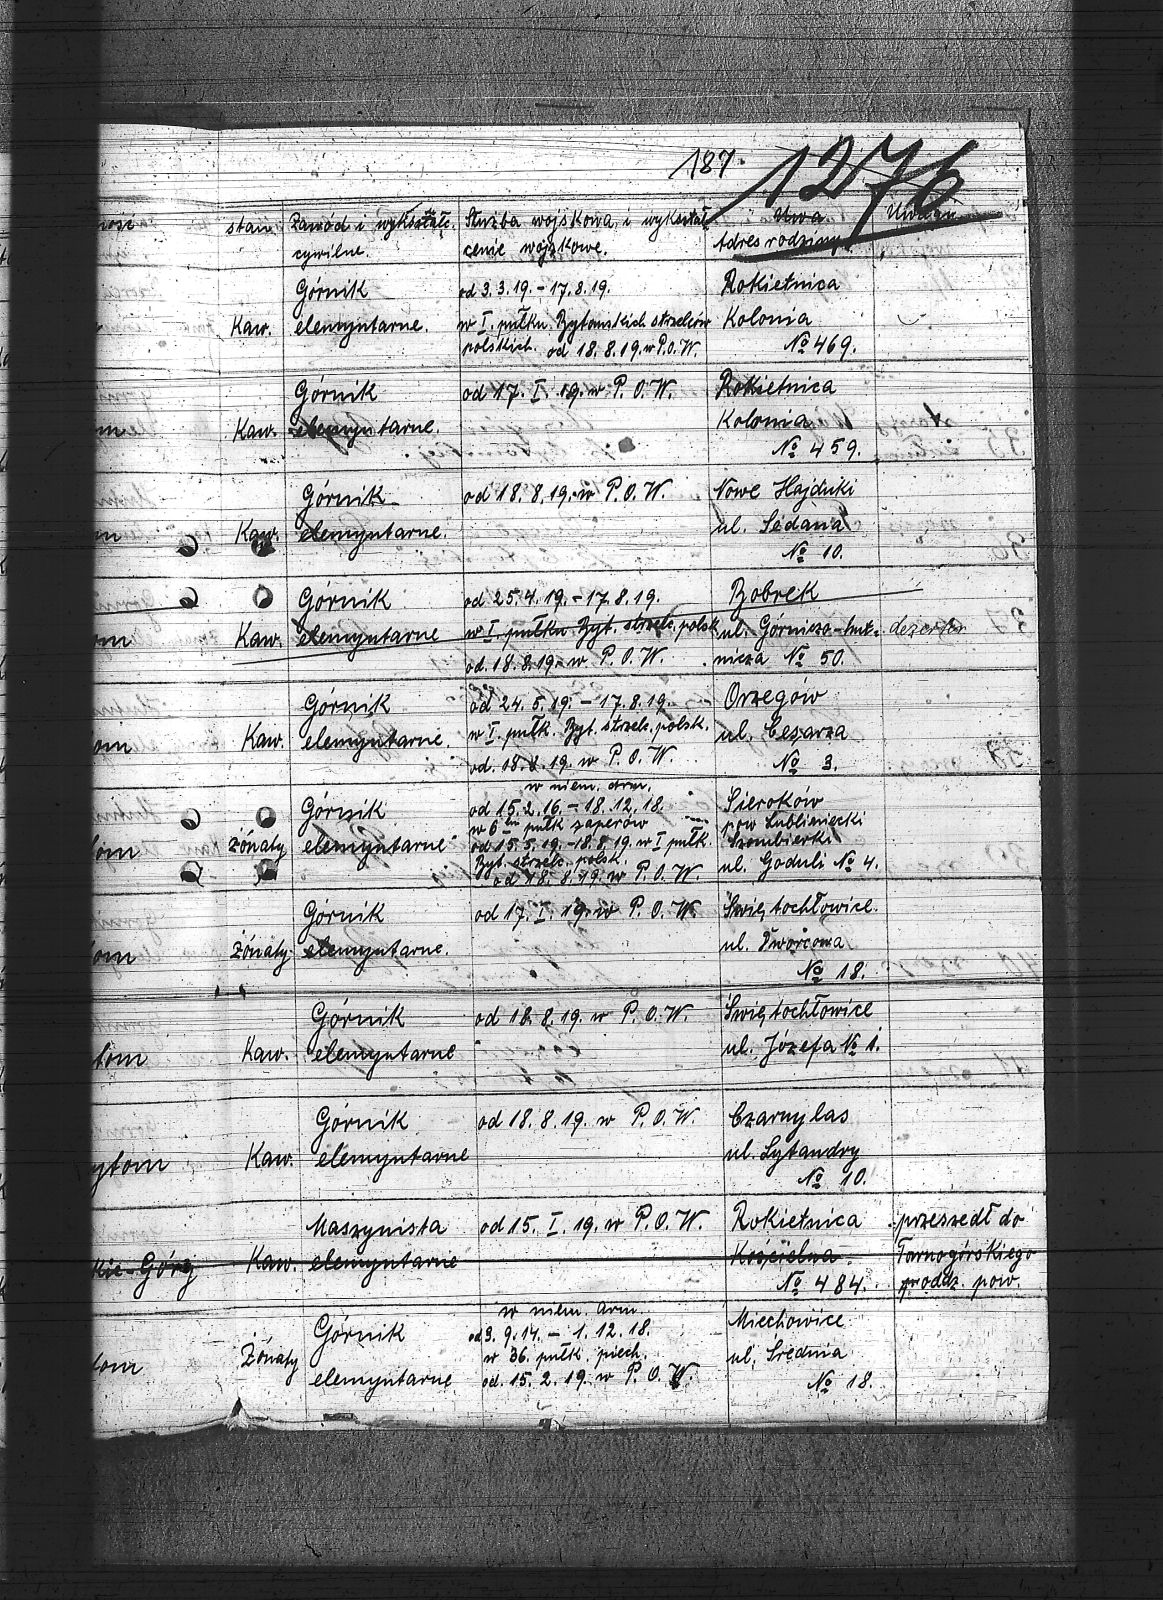 187.
1276
stan Zawód i wykształc. Służba wojskowa i wykształ Uwa Uwagi
cywilne. cenie wojskowe. Adres rodziny.
Górnik od 3.3.19. - 17.8.19. Rokietnica
Kaw. elemyntarne. w I. pułku Bytomskich strzelców Kolonia
polskich. od 18.8.19. w P.O.W. No 469.
Górnik od 17. I. 19. w P.O.W. Rokietnica
Kaw. elemyntarne. Kolonia
No 459.
Górnik od 18.8.19. w P.O.W. Nowe Hajduki
Kaw. elemyntarne. ul. Sedana
No 10.
Górnik od 25.4.19. - 17.8.19. Bobrek
Kaw. elemyntarne w I. pułku Byt. strzelc. polsk ul. Górniczo-hut- dezerter
od 18.8.19. w P.O.W. nicza No 50.
Górnik od 24.5.19. - 17.8.19. Orzegów
Kaw. elemyntarne. w I. pułk. Byt. strzelc. polsk. ul. Cesarza
od. 18.8.19. w P.O.W. No 3.
w niem. arm.
Górnik od 15.2.16. - 18.12.18. Sieroków
w 6 pułk zaperów pow Lublieniecki
Żónaty elemyntarne od 15.5.19. - 18.8.19. w I pułk. Szombierki
Byt. strzelc. polsk. ul. Goduli No 4.
od 18.8.19. w P.O.W
Górnik od 17. I. 19. w P.O.W Świętochłowice.
Żónaty. elemyntarne. ul. Dworcowa
No 18.
Górnik od 18.8.19. w P.O.W. Świętochłowice
tom Kaw. elemyntarne ul. Józefa No 1.
Górnik od 18.8.19. w P.O.W. Czarnylas
ytom Kaw. elemyntarne ul. Lytandry
No 10.
Maszynista od 15. I. 19. w P.O.W. Rokietnica przeszedł do
kie-Góry Kaw. elemyntarne Kościelna. Tarnogórskiego
No 484. oddz. pow.
w niem. arm.
Górnik od 3.9.14. - 1.12.18. Miechowice
tom Żónaty w 36. pułk piech. ul. Średnia
elemyntarne od. 15.2.19. w P.O.W. No 18.